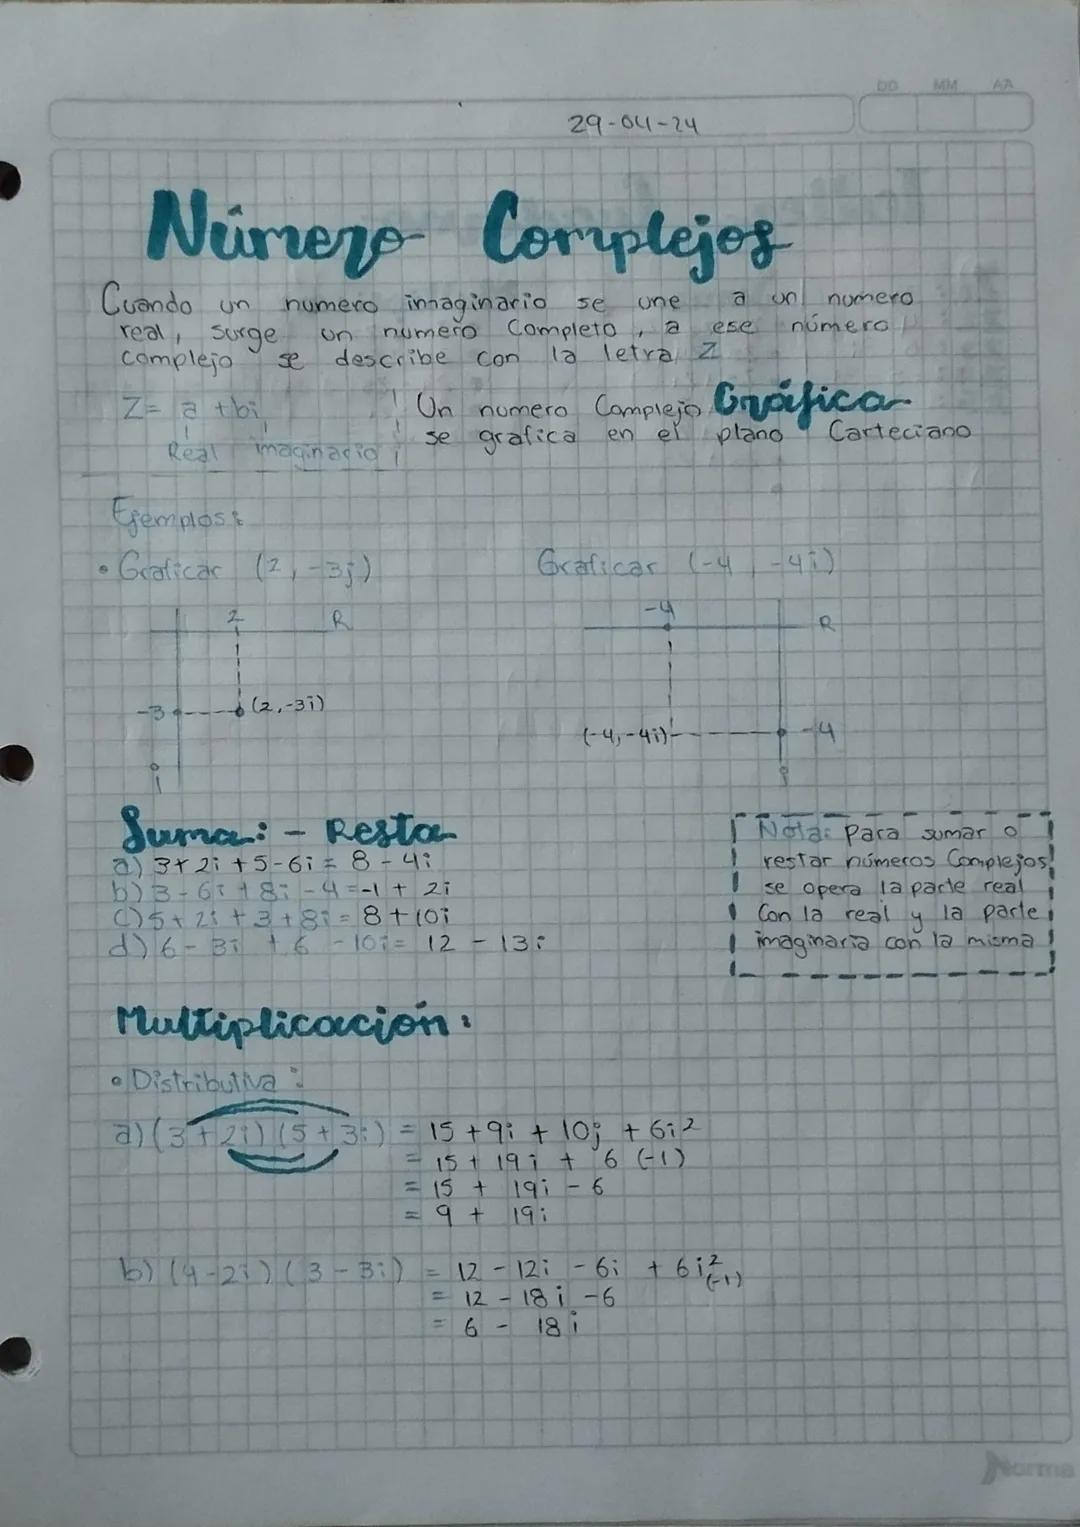 DD MM AA
29-04-24
Número Complejos
Cuando un numero imaginario se une a un numero
real, surge un numero Completo, a ese número
complejo se describe con la letra Z
Z= a +bi
Real imaginario
Un numero Complejo Gráfica
se grafica en el plano Carteciano
Ejemplos:
• Graficar (2, -3i)
Graficar (-4, -4i)
2 R
-3 (2,-3i)
i
-4
R
(-4,-4i) -4
i
Suma: - Resta
a) 3+2i+5-6i = 8 - 4i
b) 3-6i+8i-4=-1+ 2i
C) 5+2i+3+8i= 8+10i
d) 6-3i +6 -10i= 12 - 13i
Nota: Para sumar o
restar números Complejos
se opera la parte real
Con la real y la parte
imaginaria con la misma
Multiplicación:
• Distributiva:
a) (3+2i) (5+3i) = 15 +9i + 10i + 6i²
= 15 + 19i + 6 (-1)
= 15 + 19i - 6
= 9 + 19i
b) (4-2i) (3-3i) = 12 - 12i - 6i + 6i² (-1)
= 12 - 18i -6
= 6 - 18i
Norma